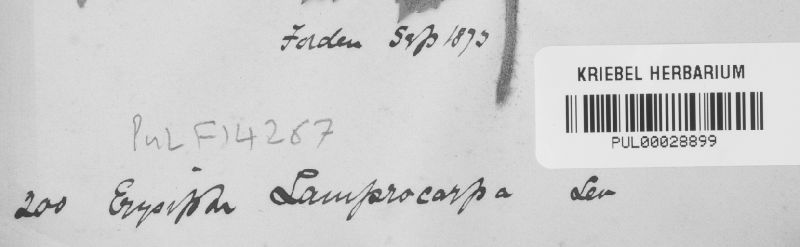 Forden Sep 1873
KRIEBEL HERBARIUM
PUL00028899
PUL F14267
200 Erysiphe Lamprocarpa Lev